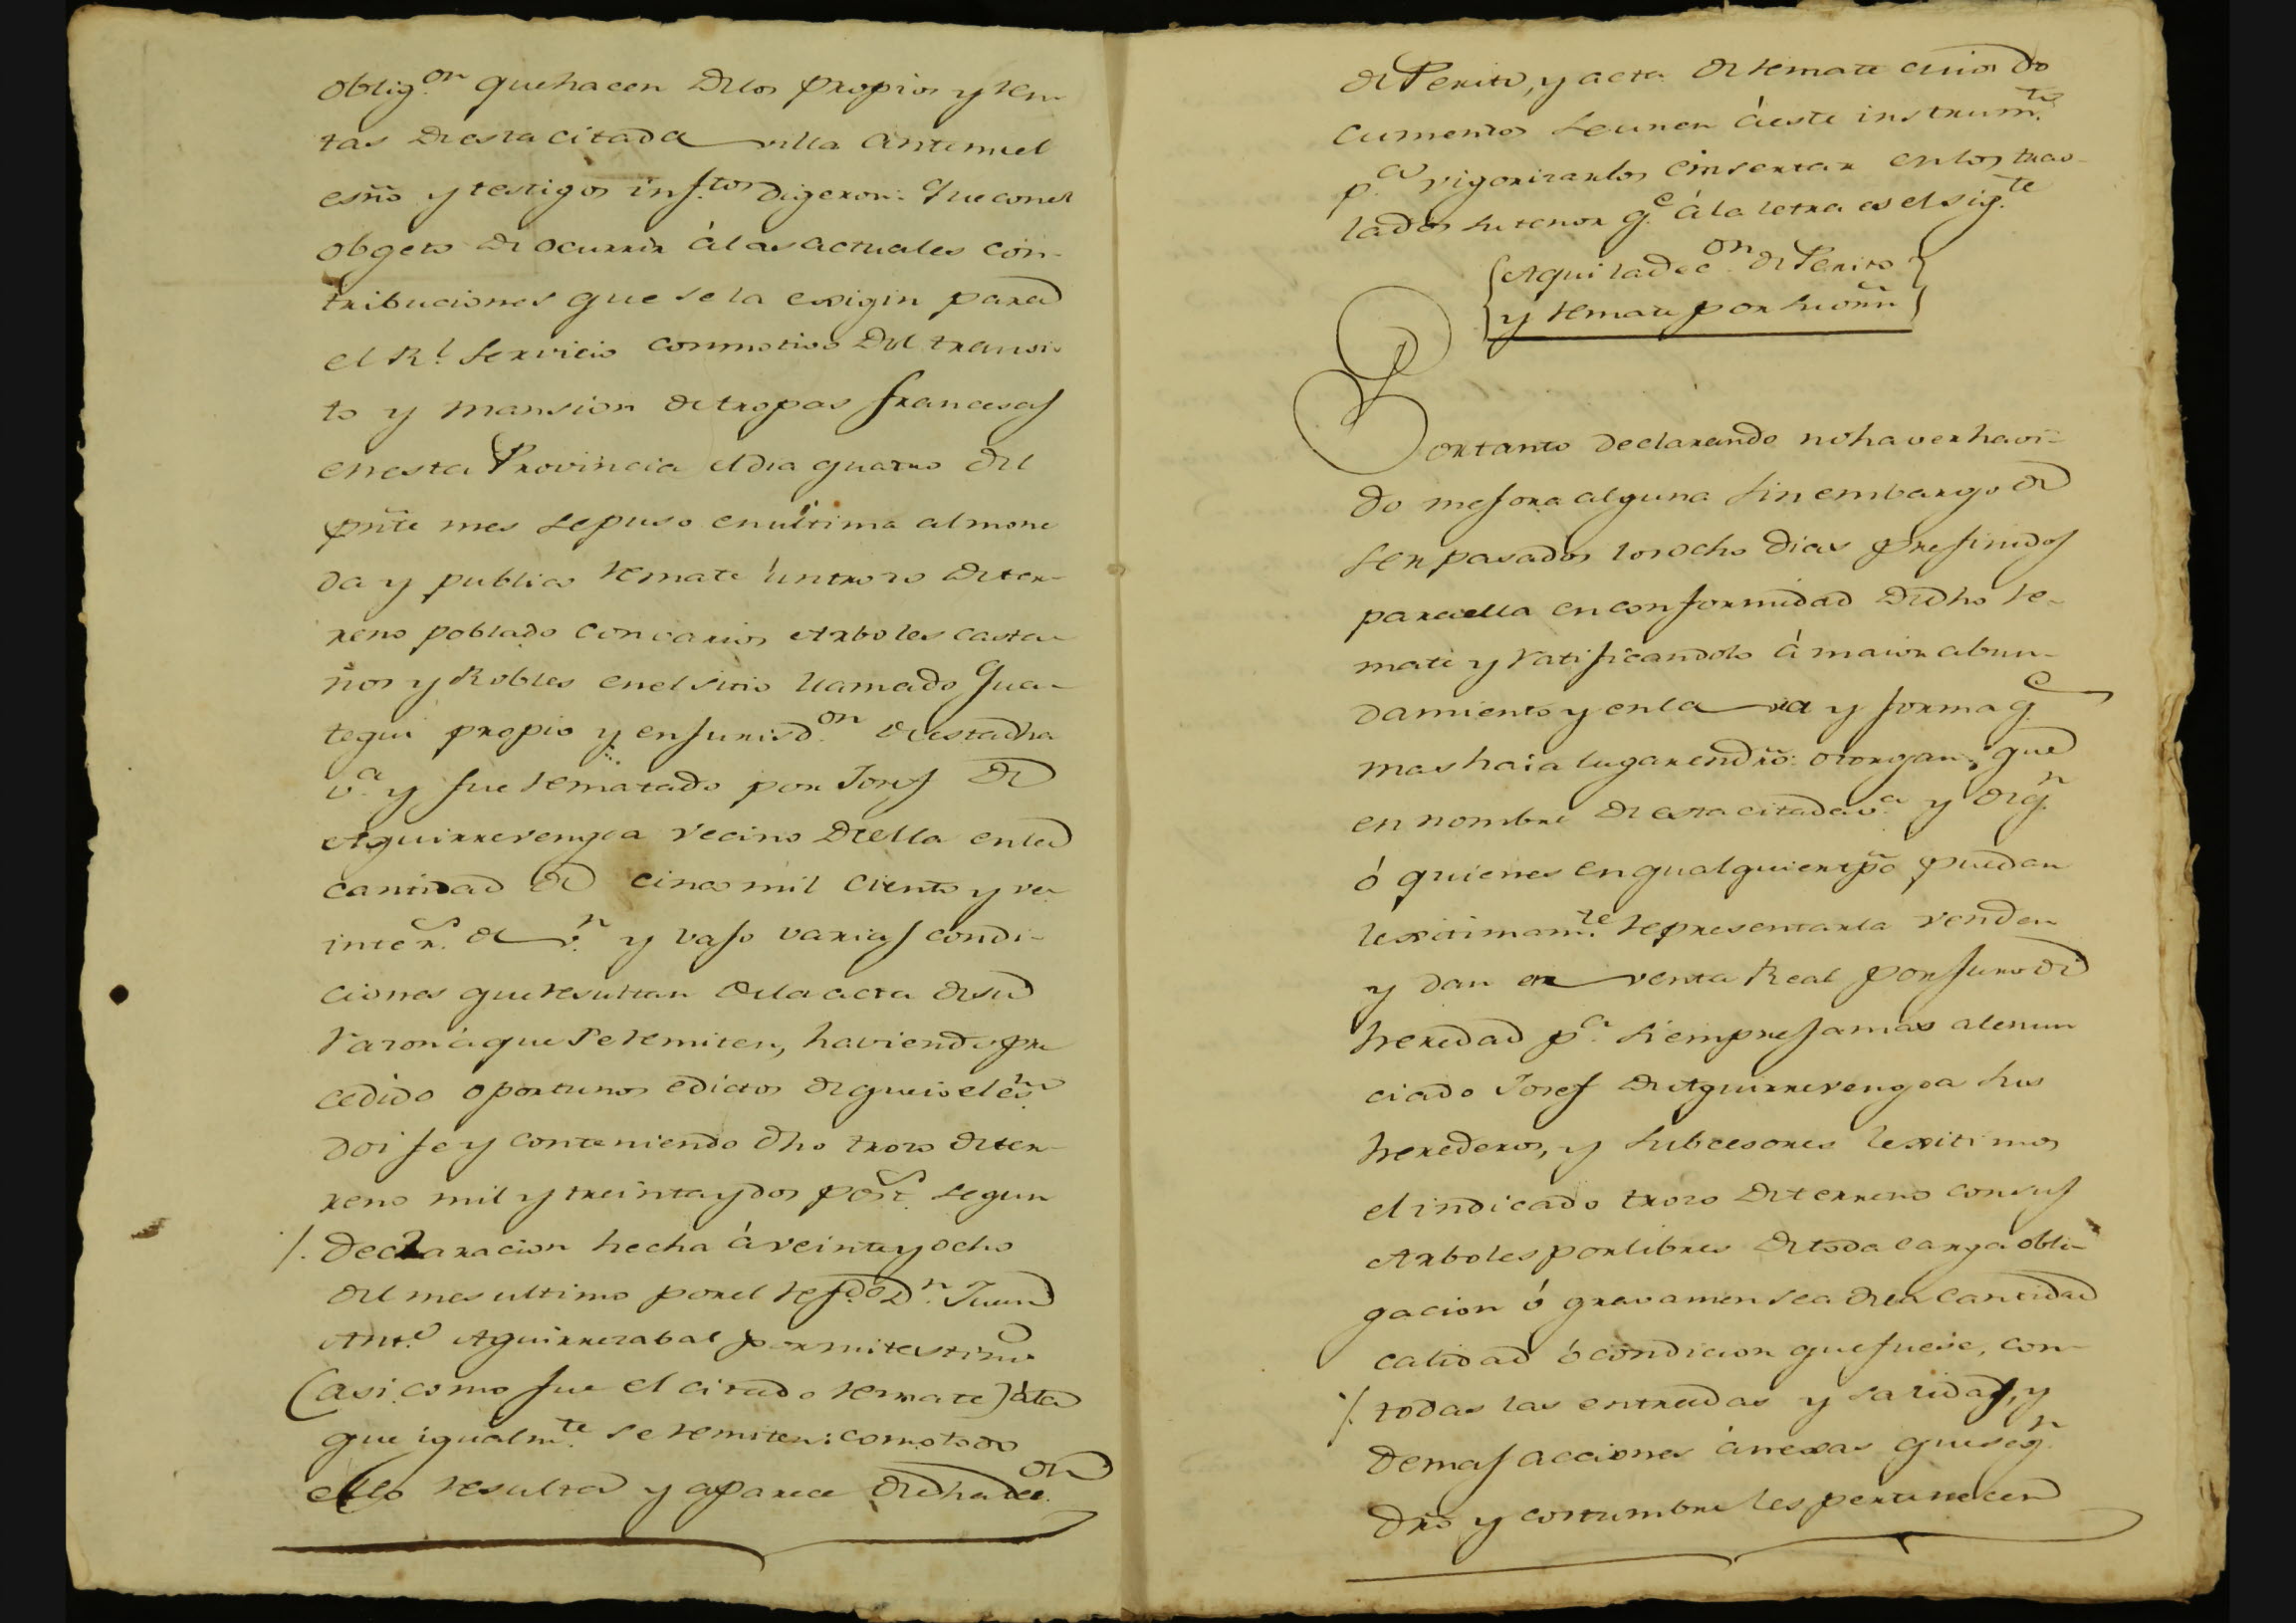 oblig.on que hacen de los propios y ren-
tas de esta citada villa ante mi el
esño y testigos infr.tos digeron: Que con el
obgeto de ocurrir á las actuales con-
tribuciones que se la exigin para
el R.l servicio con motivo del transi-
to y mansion de tropas francesas
en esta Provincia el dia quatro del
pñte mes se puso en última almone
da y publico remate ún trozo de ter-
reno poblado con varios Arboles casta-
ños y Robles en el sitio llamado Gua-
tegui propio y en jurisd.on de esta dha
v.a y fue rematado por Josef de
Aguirrevengoa vecino de ella en la
cantidad de cinco mil ciento y ve
inte r.s de v.n y vajo varias condi-
ciones que resultan de la acta de su
razon á que se remiten, haviendo pre
cedido oportunos edictos de que io el esño
doi fe y conteniendo dho trozo de ter-
reno mil y treinta y dos post.s segun
/. Declaracion hecha á veinte y ocho
del mes ultimo por el refdo D.n Juan
Ant.o Aguirrezabal por mi testim.o
(asi como fue el citado remate) á la
que igualm.te se remiten: como todo
ello resulta y aparece de dha dec.on
de Perito, y acta de remate cuios do
cumentos se unen á este instrum.to
p.a vigorizarlos é insertar en los tras-
lados su tenor q.e á la letra es el sig.te
{Aqui la dec.on de Perito}
{y remate por su orñ}
Por tanto declarando no haver havi-
do mejora alguna sin embargo de
ser pasados los ocho dias prefinidos
para ella en conformidad de dho re-
mate y ratificandolo á maior abun-
damiento y en la via y forma q.e
mas haia lugar en drõ: otorgan, que
en nombre de esta citada v.a y de q.n
ó quienes en qualquier tpõ puedan
lexitimam.te representarla venden
y dan en venta Real por juro de
heredad p.a siempre jamas al enun
ciado Josef de Aguirrevengoa sus
herederos, y subcesores lexitimos
el indicado trozo de terreno con sus
Arboles por libres de toda carga obli-
gacion ó gravamen sea de la cantidad
calidad ó condicion que fuese, con
/. todas las entradas y salidas, y
demas acciones ánexas que seg.n
drõ y costumbre les pertenecen